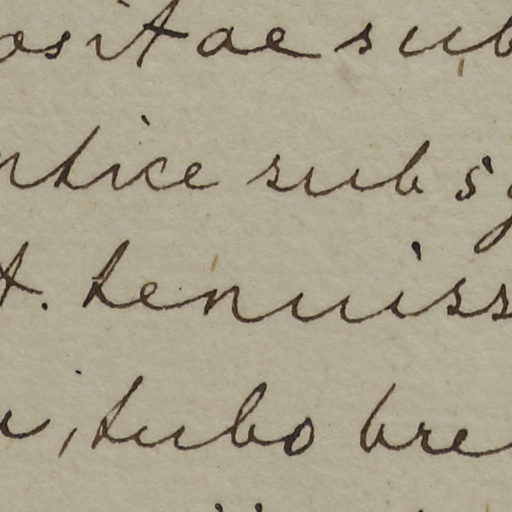 ositae sub
ntice sub 5
t. tenuiss
i, tubo bre